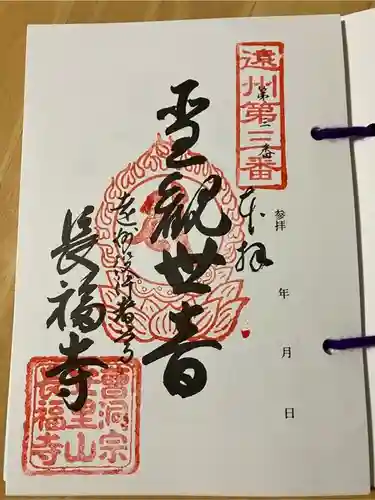 遠州第三番
第三番
奉拝
参拝 年 月 日
聖観世音
長福寺
曹洞宗
安里山
長福寺